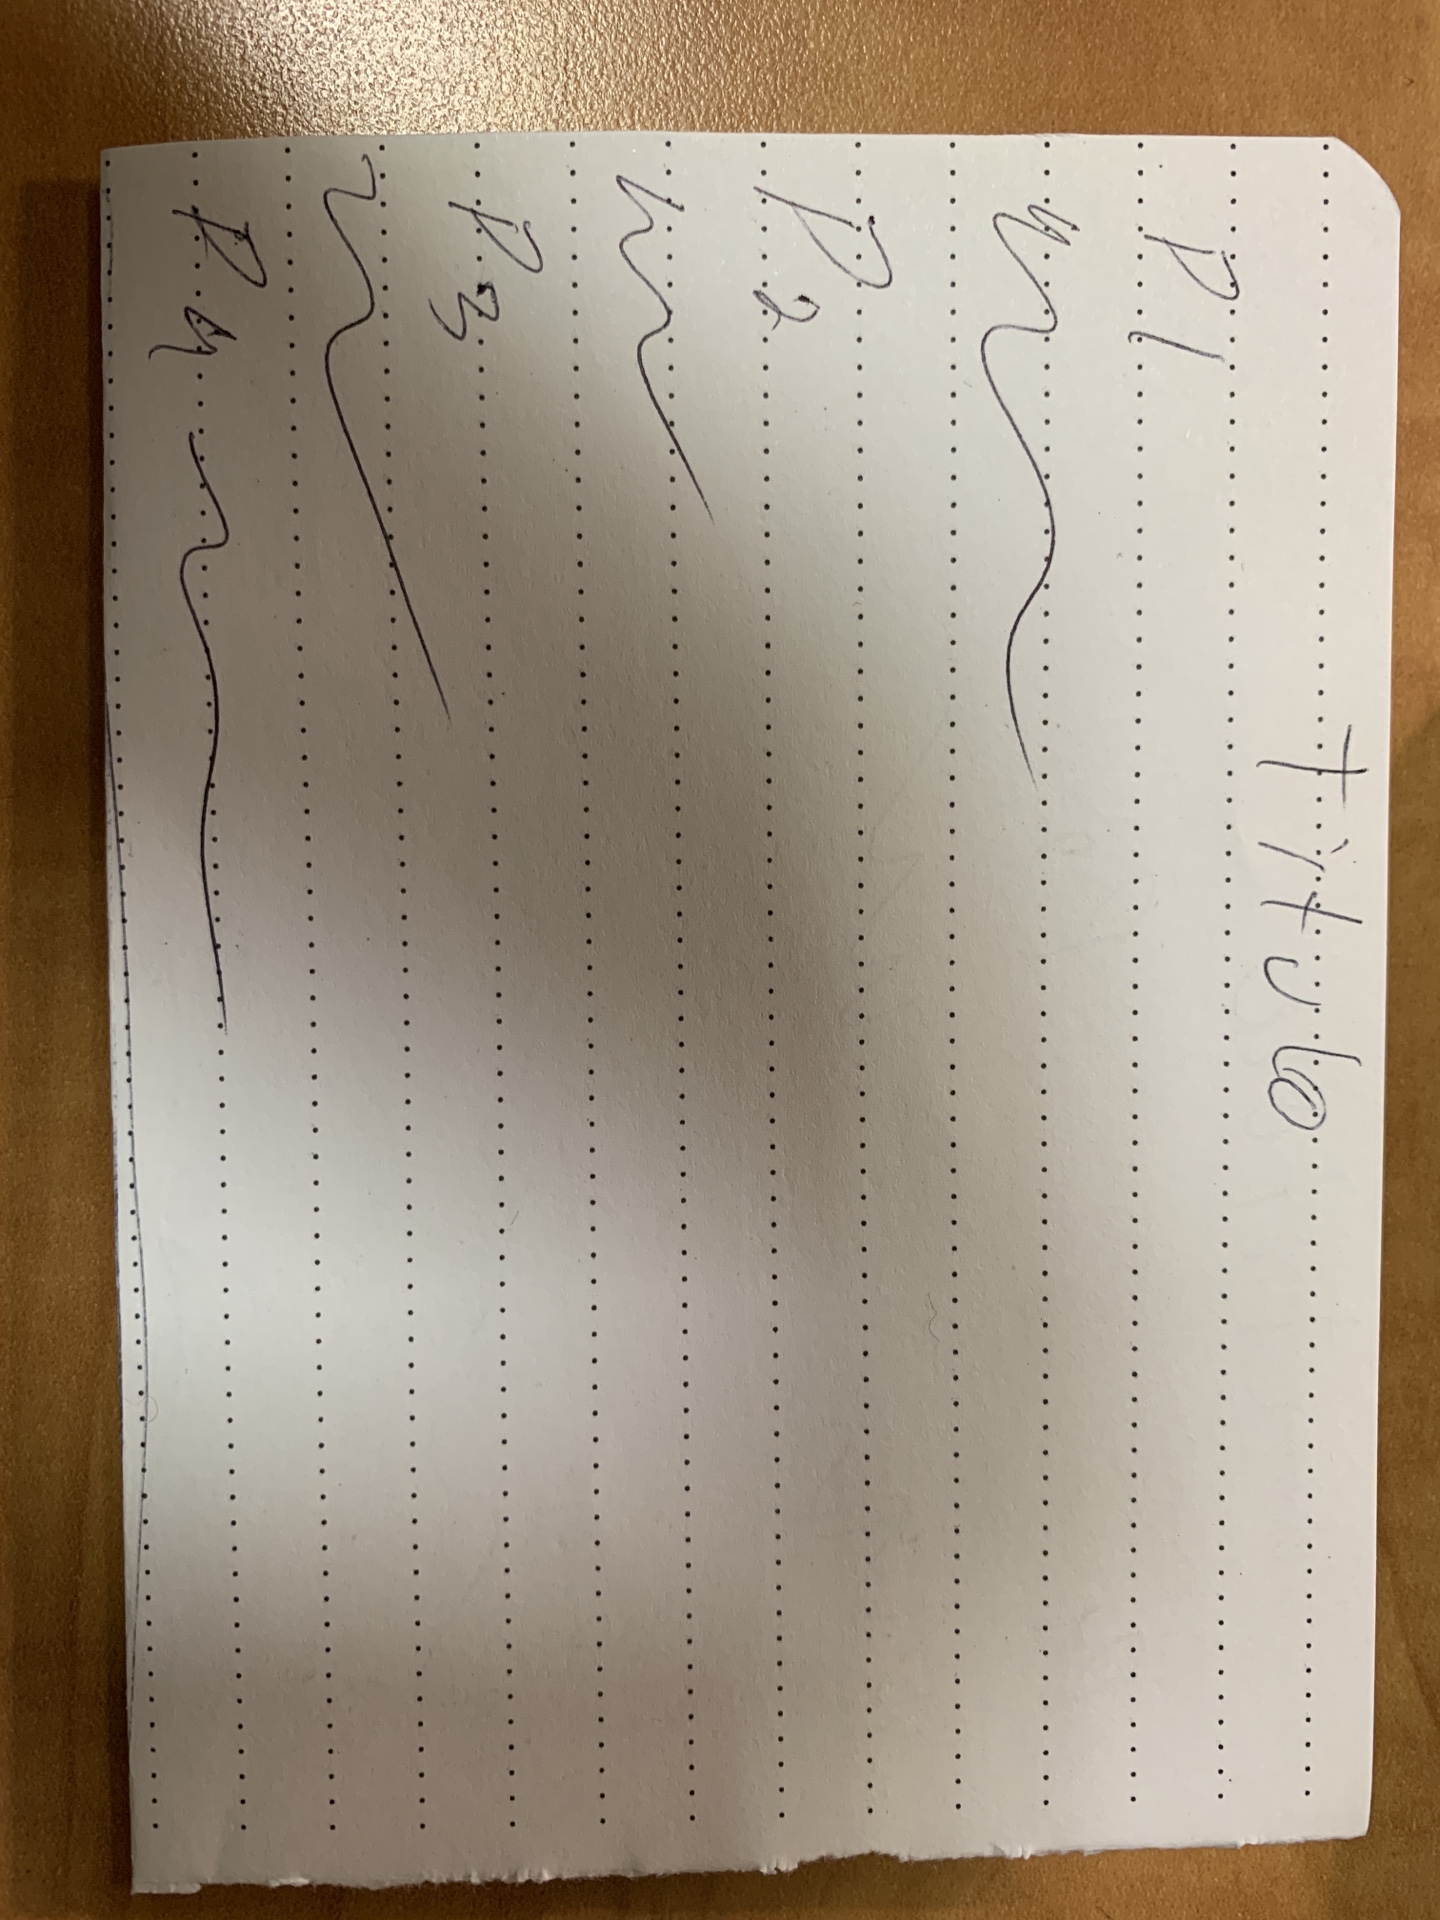 Título
P1
P2
P3
P4